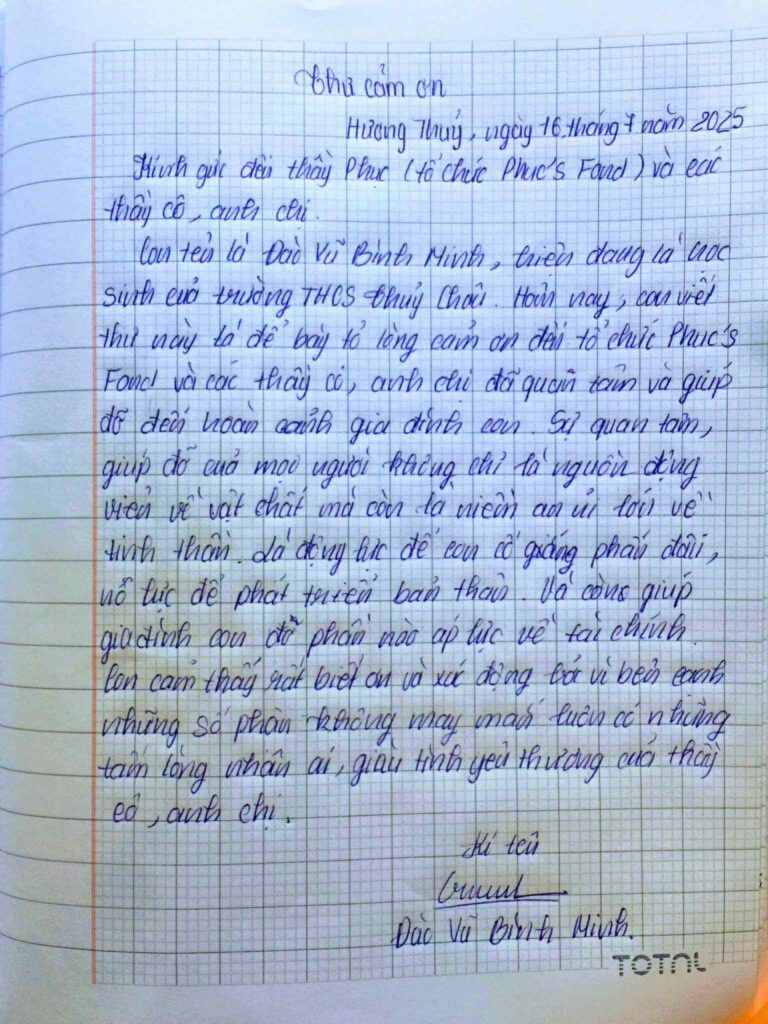 Thư cảm ơn
Hương Thuỷ, ngày 16 tháng 7 năm 2025
Kính gửi đến thầy Phúc (tổ chức Phuc's Fond) và các
thầy cô, anh chị.
Con tên là Đào Vũ Bình Minh, hiện đang là học
sinh của trường THCS Thuỷ Châu. Hôm nay, con viết
thư này là để bày tỏ lòng cảm ơn đến tổ chức Phuc's
Fond và các thầy cô, anh chị đã quan tâm và giúp
đỡ đến hoàn cảnh gia đình con. Sự quan tâm,
giúp đỡ của mọi người không chỉ là nguồn động
viên về vật chất mà còn là niềm an ủi lớn về
tinh thần. Là động lực để con cố gắng phấn đấu,
nỗ lực để phát triển bản thân. Và cũng giúp
gia đình con đỡ phần nào áp lực về tài chính.
Con cảm thấy rất biết ơn và xúc động bởi vì bên cạnh
những số phận không may mắn luôn có những
tấm lòng nhân ái, giàu tình yêu thương của thầy
cô, anh chị.
Kí tên
Đào Vũ Bình Minh.
TOTAL